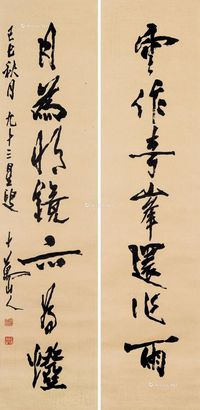 雲作奇峯還作雨
月為明鏡亦為燈
己巳秋月 九十三星閣
十萬山人